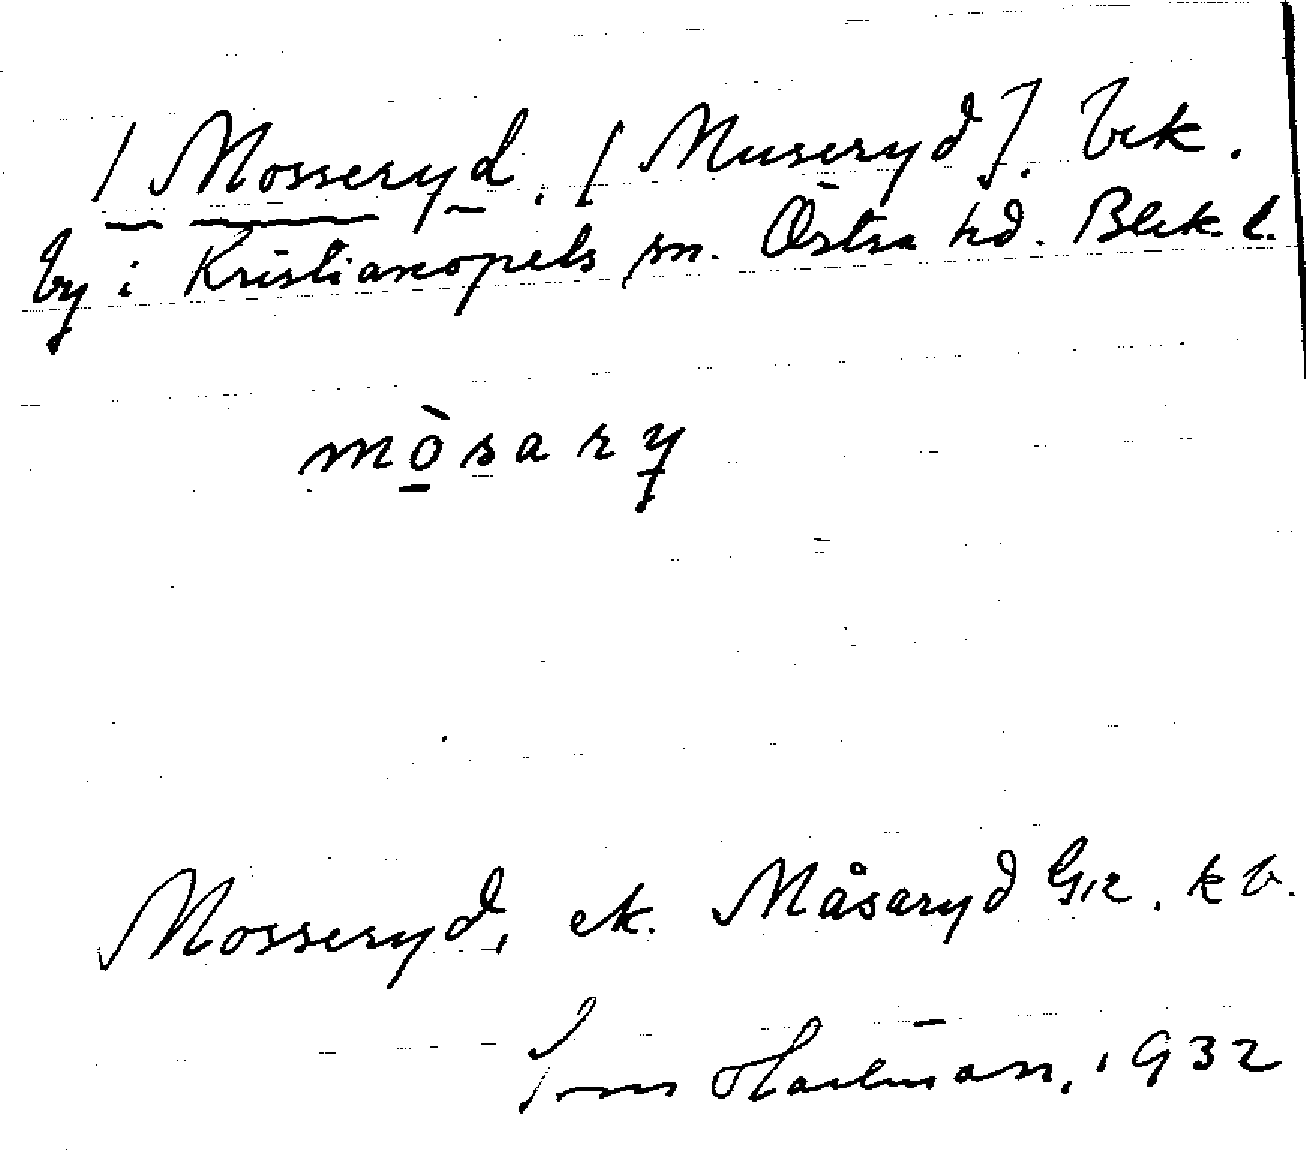 / Mosseryd. [Museryd]. bek.
by i Kristianopels sn. Östra hd. Blek l.
mòsary
Mosseryd, ek. Måsaryd Gk. kb.
Hartman, 1932